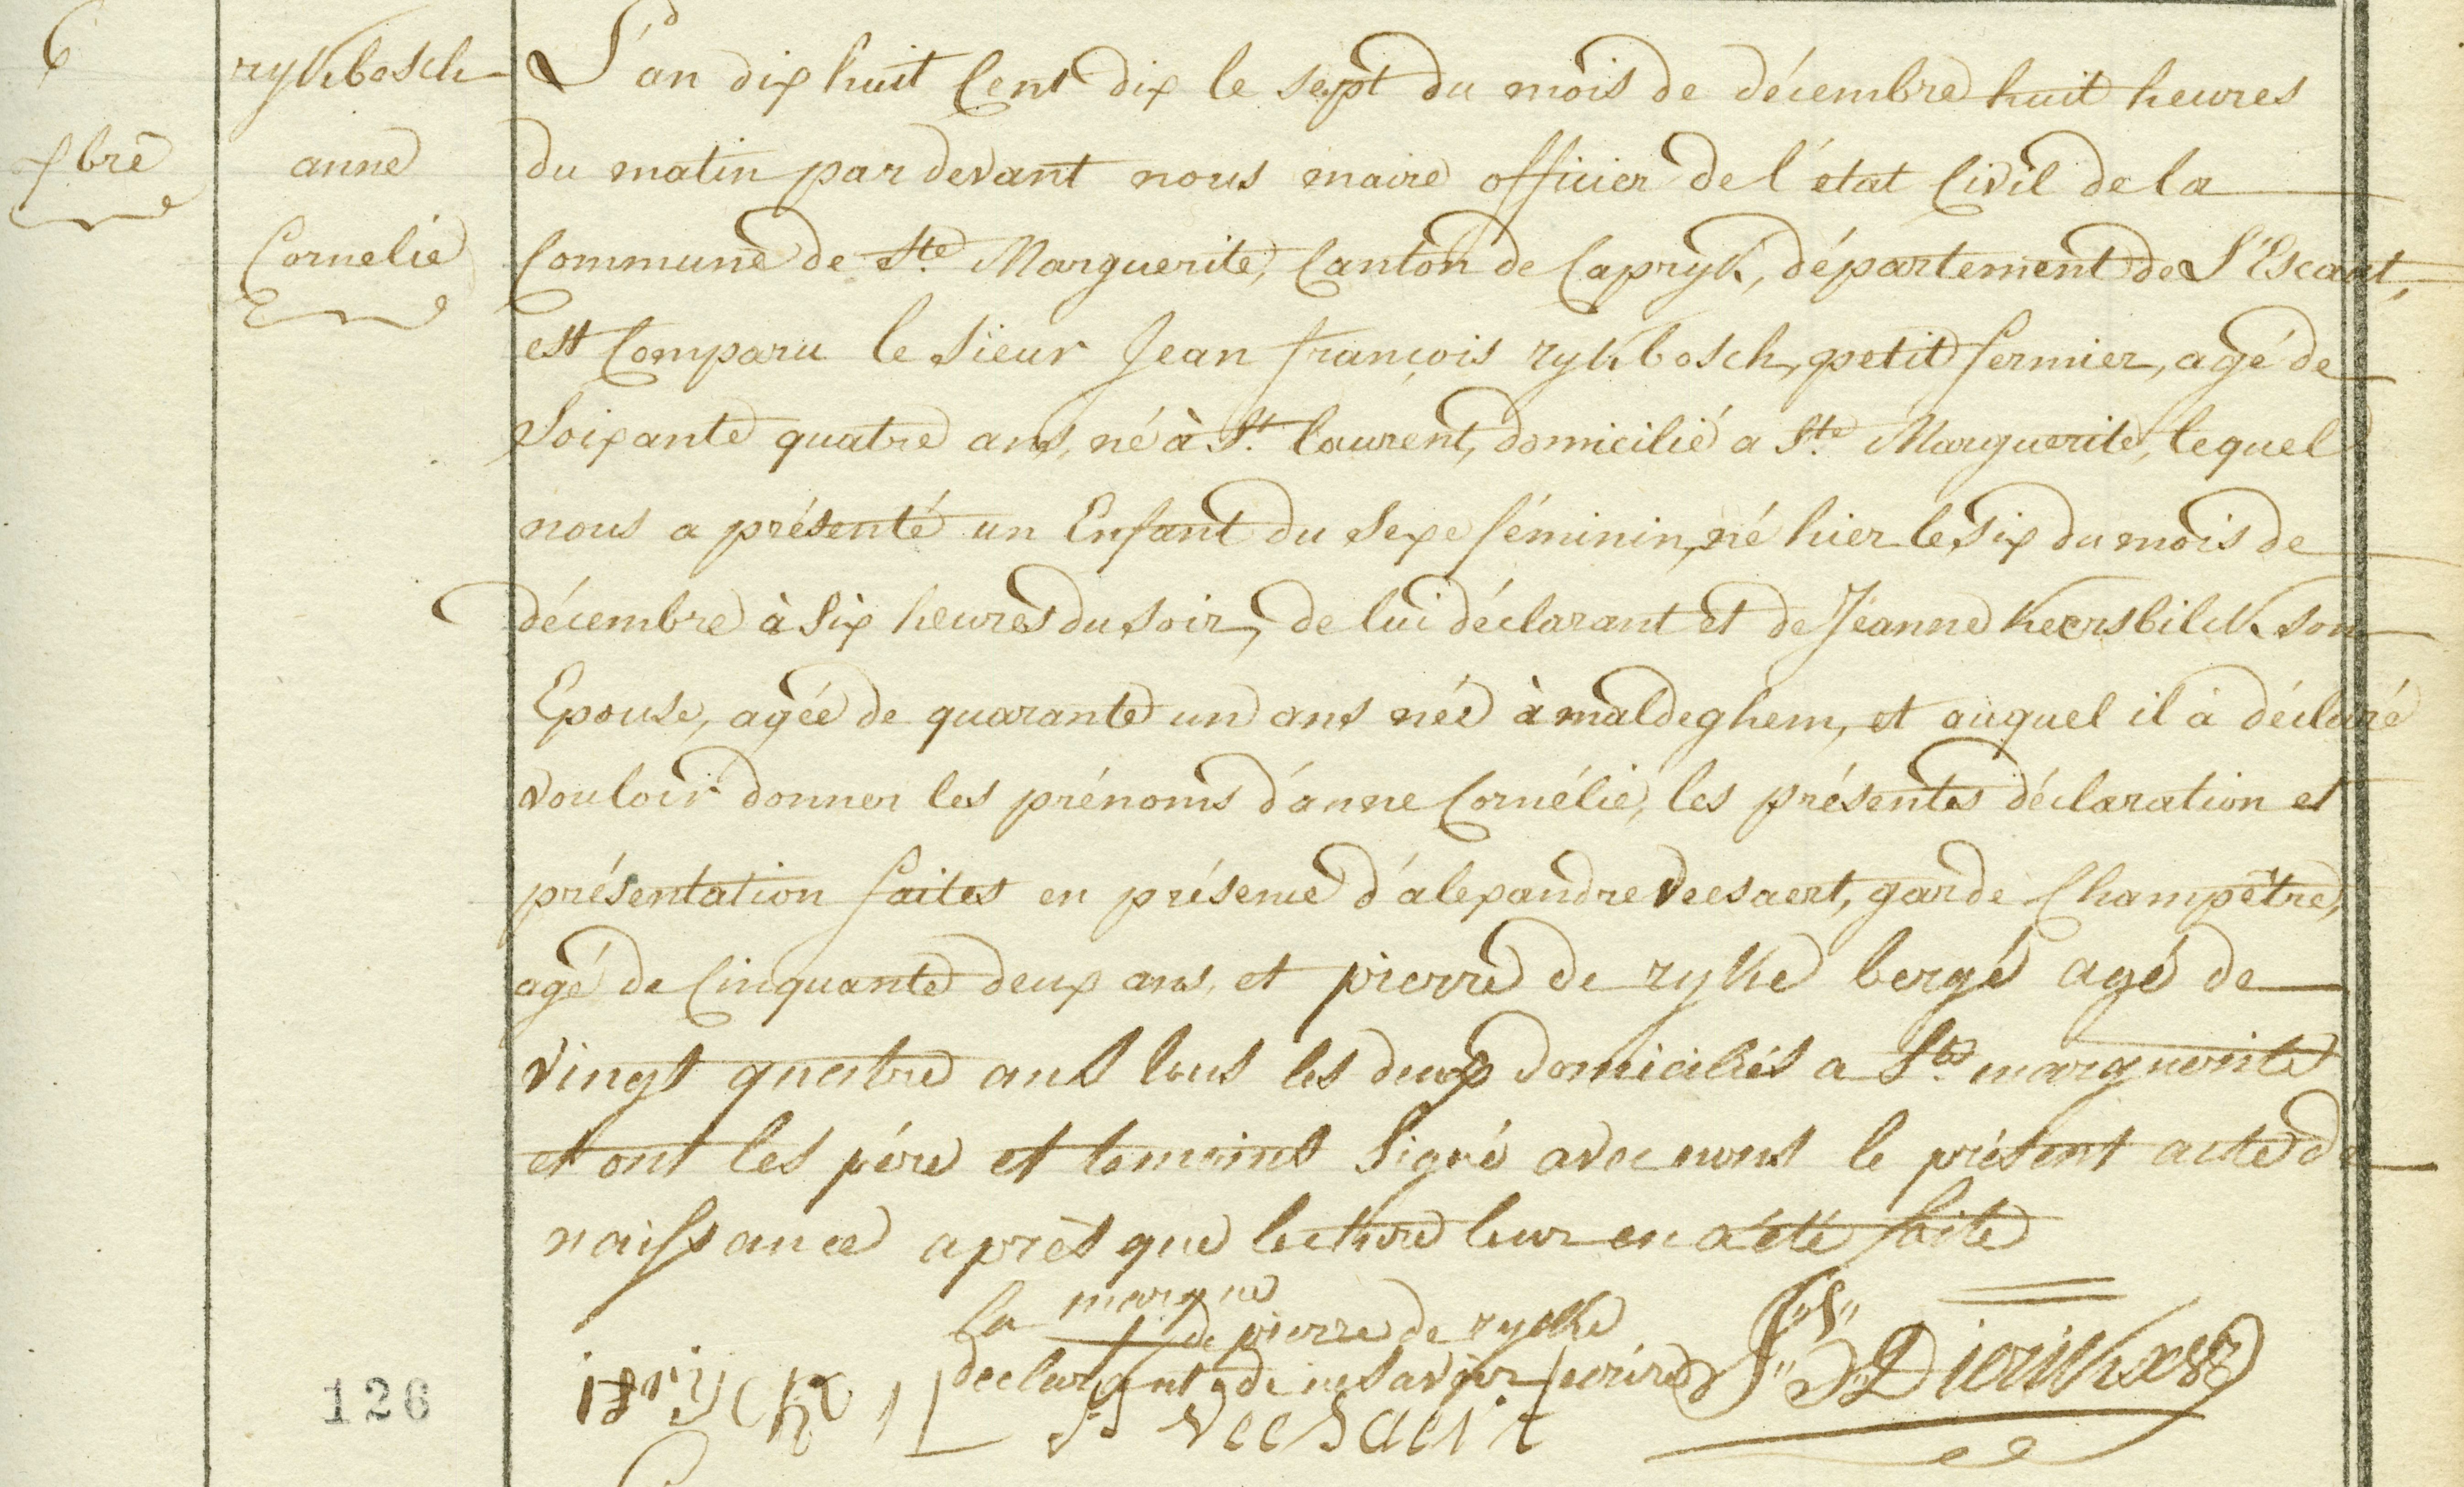 6
xbre
rykbosch
anne
Cornelie
L'an dix huit Cent dix le sept du mois de décembre huit heures
du matin par devant nous maire officier de l'état Civil de la
Commune de Ste Marguerite, Canton de Capryk, département de L'Escaut,
est Comparu le sieur Jean françois rykbosch, petit fermier, agé de
Soixante quatre ans, né à St. laurent, domicilié a Ste Marguerite, lequel
nous a présenté un Enfant du sexe féminin, né hier le six du mois de
décembre à six heures du soir, de lui déclarant et de Jéanne Keersbilck son
Epouse, agée de quarante un ans née à maldeghem, et auquel il à déclaré
vouloir donner les prénoms d'anne Cornélie, les présentes déclaration et
présentation faites en présence d'alexandre Veesaert, garde Champêtre,
agé de Cinquante deux ans, et pierre de ryke bergé agé de
vingt quatre ans tous les deux domiciliés a Ste marguerite
et ont les pére et temoins signé avec nous le présent acte de
naissance aprés que lecture leur en a été faite
la marque
de pierre de rycke
declarant de ne savoir ecrire
Veesaert
126